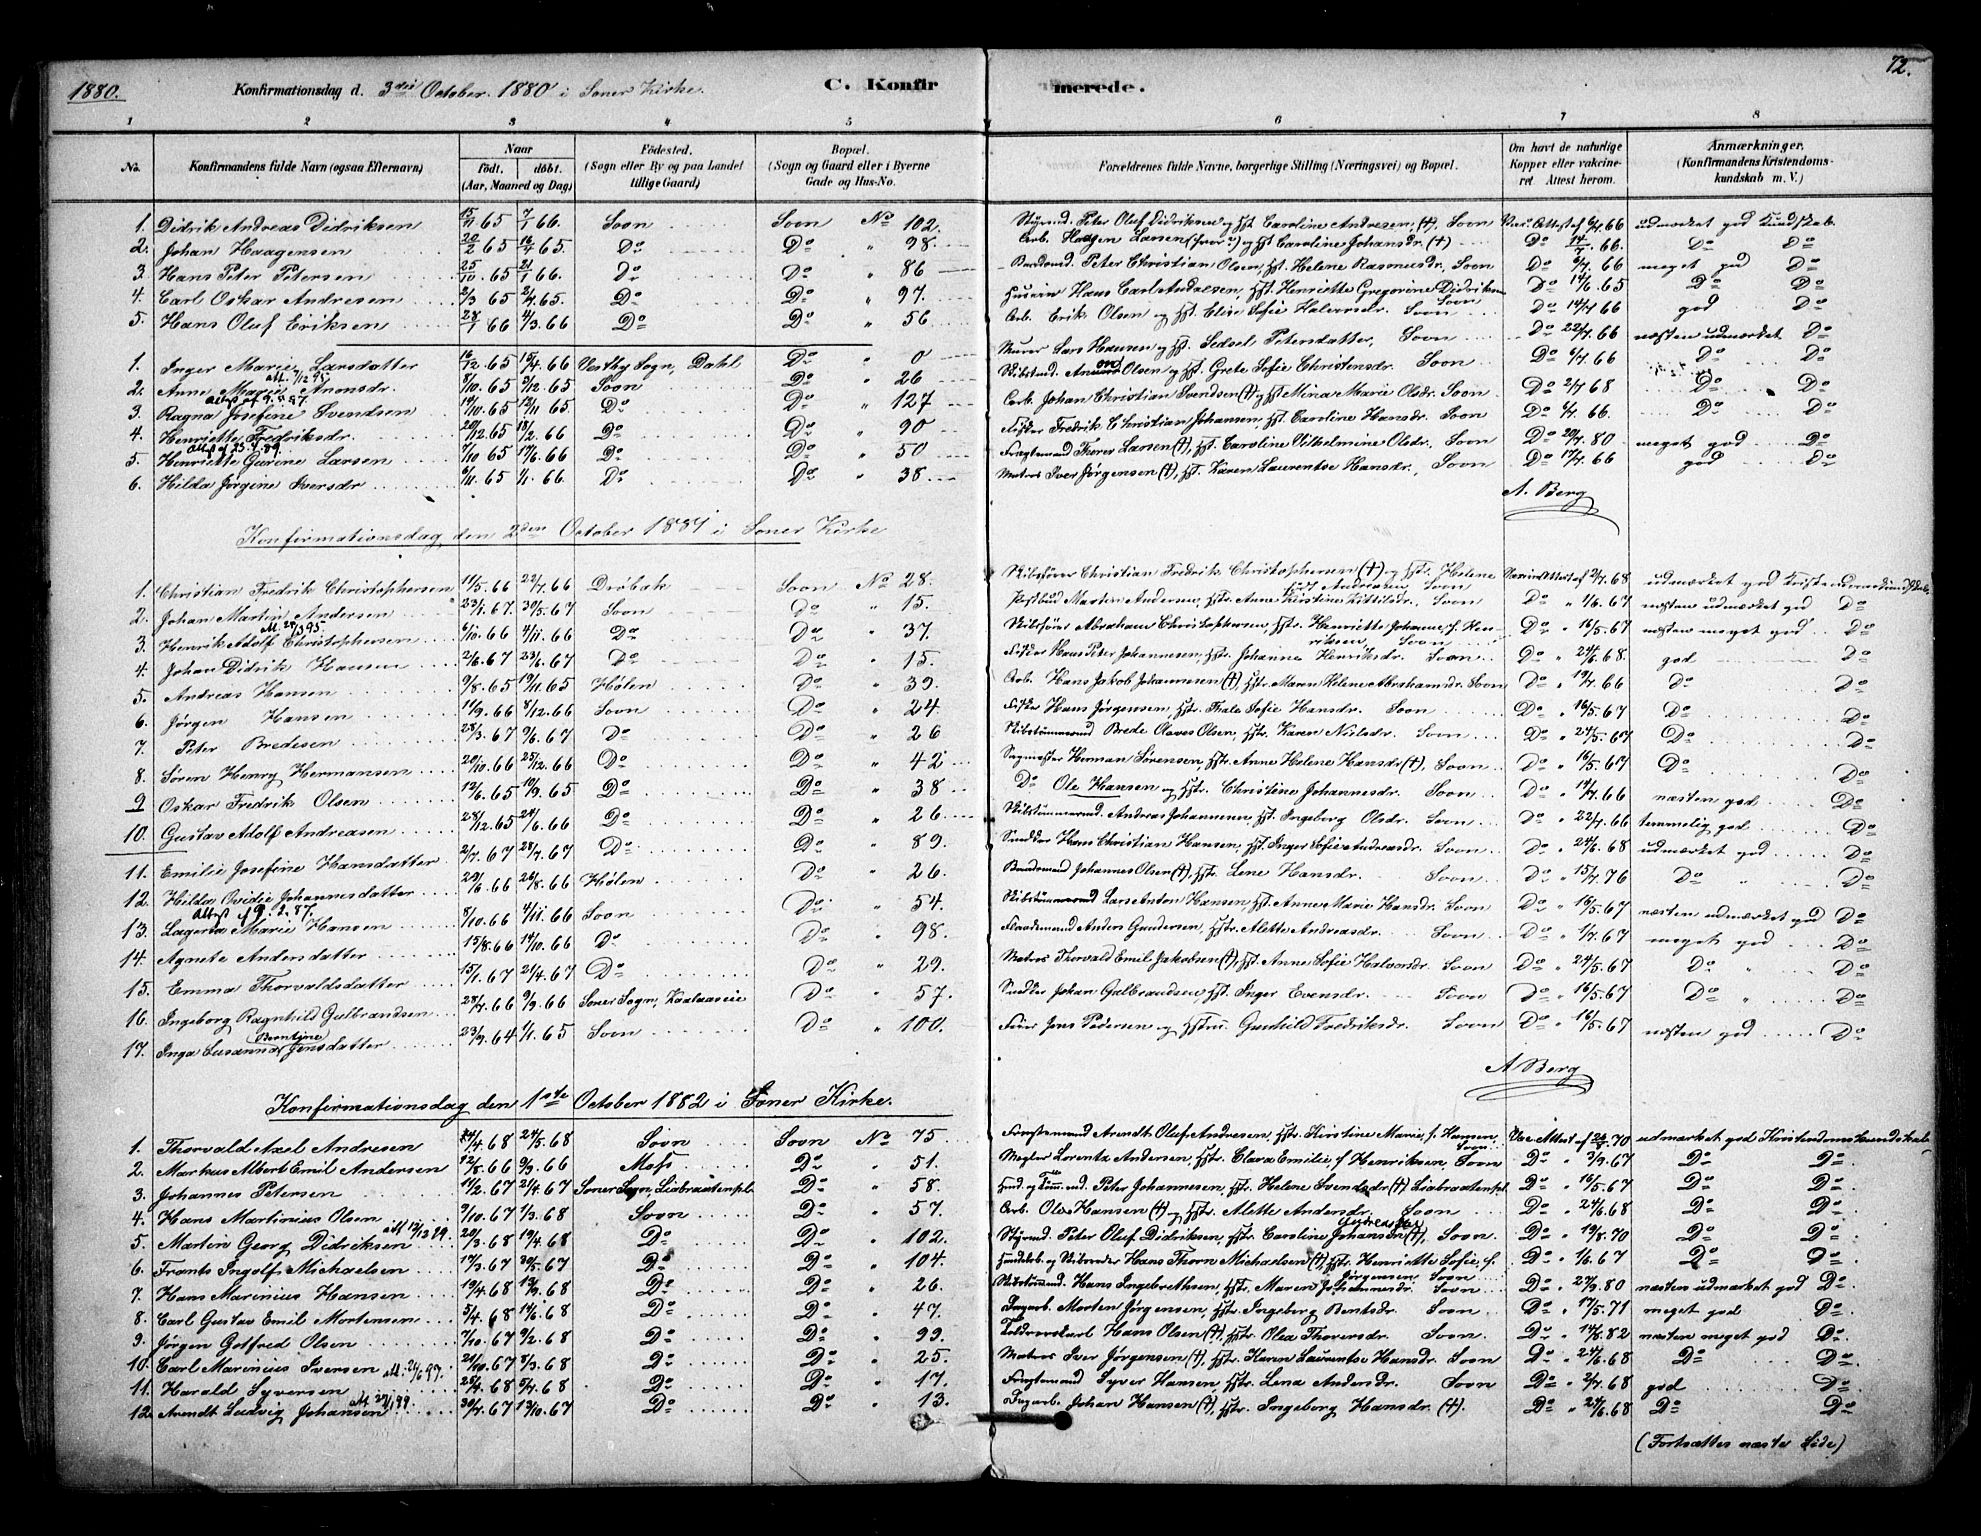 1880.
Konfirmationsdag d. 3die October 1880 i Soner Kirke.
C. Konfirmerede.
72.
1 2 3 4 5 6 7 8
No.
Konfirmandens fulde Navn (ogsaa Efternavn)
Naar
født. døbt.
(Aar, Maaned og Dag)
Fødested.
(Sogn eller By og paa Landet
tillige Gaard)
Bopæl.
(Sogn og Gaard eller i Byerne
Gade og Hus-No.
Forældrenes fulde Navne, borgerlige Stilling (Næringsvei) og Bopæl.
Om havt de naturlige
Kopper eller vakcine-
ret Attest herom.
Anmærkninger.
(Konfirmandens Kristendoms-
kundskab m. V.)
1. Didrik Andreas Didriksen 15/11 65 7/1 66. Soon Soon No 102. Styrmd. Peter Oluf Didriksen og Hst. Caroline Andresen (†), Soon Vac. Attest af 6/7 66 udmærket god Kundskab
2. Johan Haagensen 20/2 65 16/4 65. Do Do " 98. Arb. Haagen Larsen og Hst. Caroline Johansdr. (†) Do 14/7 66. Do Do
3. Hans Peter Petersen 25/10 65 21/1 66. Do Do " 86 Peter Christian Olsen, Hst. Helene Rasmusdr. Soon Do 6/7 66 meget god Do
4. Carl Oskar Andresen 2/3 65 2/4 65. Do Do " 97. Hans Carl Andresen, Hst. Henriette Gregorine Didriksen Soon Do 14/6 65 Do Do
5. Hans Oluf Eriksen 28/1 66 4/3 66 Do Do " 56 Arb. Erik Olsen og Hst. Elise Sofie Halvorsdr. Soon Do 14/7 66 god Do
1. Inger Marie Larsdatter 16/12 65 15/4 66 Vestby Sogn, Dahl Do " 0 Murer Lars Hansen og Hst. Sedsel Petersdatter, Soon Do 22/7 66 næsten udmærket Do
att. 7/12 95
2. Anne Marie Amonsdr. 8/10 65 9/12 65 Soon Do " 26 Skibstmd. Amund Olsen og Hst. Grete Sofie Christensdr. Soon Do 6/7 66 Do Do
3. Ragna Josefine Svendsen 14/10 65 12/11 65. Do Do " 127 Arb. Johan Christian Svendsen (†) og Hst. Mina Marie Olsdr. Soon Do 2/7 68 Do Do
4. Henriette Fredriksdr. 20/12 65 18/2 66 Do Do " 90 Fisker Fredrik Christian Johansen, Hst. Caroline Hansdr. Soon Do 6/7 66. Do Do
Attest 23.4.89.
5. Henriette Gurine Larsen 7/10 65 17/6 66 Do Do " 50 Fragtemand Thorer Larsen (†), Hst. Caroline Vilhelmine Olsdr. Soon Do 20/7 80 meget god Do
6. Hilda Jørgine Iversdr 6/11 65 1/1 66. Do Do " 38 Matros Iver Jørgensen (†), Hst. Karen Laurentse Hansdr. Soon Do 17/7 66 god Do
A. Berg
Konfirmationsdag den 2den October 1881 i Soner Kirke
1. Christian Fredrik Christophersen 11/5 66 22/7 66 Drøbak Soon No 28. Skibsfører Christian Fredrik Christophersen (†) og Hst. Helene Andreasen Soon Vaccine Attest af 2/7 68 udmærket god Kristendomskundskab
2. Johan Martin Andersen 23/1 67 30/5 67 Soon Do " 15. Postbud Martin Andersen, Hstr. Anne Kirstine Kittilsdr., Soon Do " 1/6 67 næsten udmærket god Do
att. 28/3 95.
3. Henrik Adolf Christophersen 6/10 66 4/11 66 Do Do " 37. Skibsfører Abraham Christophersen, Hstr. Henriette Johanne f. Henriksen, Soon Do " 16/5 67 næsten meget god Do
4. Johan Didrik Hansen 2/6 67 23/6 67 Do Do " 15. Fisker Hans Peter Johannesen, Hstr. Johanne Henriksdr. Soon Do " 24/6 68. god Do
5. Andreas Hansen 9/8 65 19/11 65 Hølen Do " 39. Arb. Hans Jakob Johannesen (†), Hstr. Maren Helene Abrahamsdr. Soon Do " 19/7 66 Do Do
6. Jørgen Hansen 11/9 66 8/12 66 Soon Do " 24 Fisker Hans Jørgensen, Hstr. Thale Sofie Hansdr. Soon Do " 16/5 67 Do Do
7. Peter Bredesen 28/3 67 9/6 67 Do Do " 26 Skibstømmermd Brede Olaves Olsen, Hstr. Karen Nielsdr. Soon Do " 24/5 67 Do Do
8. Søren Henry Hermansen 20/10 66 25/12 66 Do Do " 42 Sagmester Herman Sørensen, Hstr. Anne Helene Hansdr (†), Soon Do " 16/5 67 Do Do
9 Oskar Fredrik Olsen 12/6 65 10/9 65 Do Do " 38 Do Ole Hansen og Hst. Christine Johannesdr. Soon Do " 14/7 66 næsten god Do
10. Gustav Adolf Andreasen 28/12 65 24/6 66 Do Do " 26 Skibstømmermd. Andreas Johannesen, Hst. Ingeborg Olsdr. Soon Do " 22/7 66 temmelig god Do
11. Emilie Josefine Hansdatter 2/7 67 28/7 67 Do Do " 89. Snedker Hans Christian Hansen, Hst. Inger Sofie Andreasdr. Soon Do " 24/6 68 udmærket god Do
12. Hilda Ovidie Johannesdatter 29/6 66 26/8 66 Hølen Do " 26. Johannes Olsen (†), Hstr. Lene Hansdr. Soon Do " 15/7 76 Do " Do
Attest 9.2.87.
13. Lagerta Marie Hansen 8/10 66 4/11 66 Soon Do " 54. Skibstømmermd Lars Anton Hansen, Hst. Anne Marie Hansdr. Soon Do " 16/5 67 næsten udmærket god Do
14. Agnete Andersdatter 15/8 66 14/10 66 Do Do " 98. Anders Gundersen, Hstr. Alette Andreasdr. Soon Do " 1/7 67 meget god Do
15. Emma Thorvaldsdatter 15/1 67 21/4 67 Do Do " 29. Matros Thorvald Emil Jakobsen (†), Hst. Anne Sofie Halvorsdr. Soon Do " 24/5 67 Do " Do
16. Ingeborg Ragnhild Gulbrandsen 28/7 66 9/9 66 Soner Sogn, Do " 57. Snedker Johan Gulbrandsen, Hst. Inger Evensdr. Soon Do " 16/5 67 Do " Do
Berntine
17. Inga Susanna Jensdatter 23/9 64 1/1 65 Soon Do " 100. Jens Pedersen og Hustru Gunhild Fredriksdr. Soon Do " 16/5 67 næsten god Do
A Berg
Konfirmationsdag den 1ste October 1882 i Soner Kirke.
1. Thorvald Axel Andresen 14/4 68 24/5 68 Soon Soon No 75 Fragtemand Arendt Oluf Andresen, Hstr. Kirstine Marie, f. Hansen, Soon Vac. Attest af 70 udmærket god Kristendomskundskab
2. Markus Albert Emil Andersen 12/8 66 9/9 66 Moss Do " 51. Megler Lorentz Andersen, Hstr. Clara Emilie, f Henriksen, Soon Do " 3/9 67 Do Do
3. Johannes Petersen 17/2 67 21/4 67 Soner Sogn, Liabraatenpl. Do " 58. Peter Johannesen, Hstr. Helene Svendsdr (†) Liabraatenpl. Do " 16/5 67 Do Do
4. Hans Martinius Olsen 7/10 67 1/3 68 Soon Do " 57. Arb. Ole Hansen (†) og Hstr. Alette Andersdr. Soon Do " 24/6 68 Do Do
att 12/12 89.
5. Martin Georg Didriksen 20/3 68 19/4 68 Do Do " 102. Styrmd Peter Oluf Didriksen, Hstr. Caroline Johansen (†), Soon Do " 19/8 70 Do Do
6. Frants Ingolf Michaelsen 17/3 67 20/5 67 Do Do " 104. Hans Thorn Michaelsen (†), Hstr. Henriette Sofie, f. Jørgensen, Soon Do " 1/6 67 Do Do
7. Hans Marinius Hansen 19/4 68 13/9 68 Do Do " 26. Skibstmand. Hans Ingebrethsen, Hstr. Maren Johannesdr. Soon Do " 27/9 80 næsten udmærket god Do
8. Carl Gustav Emil Mortensen 5/4 68 14/6 68 Do Do " 47. Dagarb. Morten Jørgensen, Hstr. Ingeborg Bentsdr. Soon Do " 17/5 71 meget god Do
9. Jørgen Gotfred Olsen 7/10 67 9/2 68 Do Do " 99. Hans Olsen (†), Hstr. Olea Thoversdr. Soon. Do " 14/8 82 næsten meget god Do
10. Carl Marinius Iversen att. 24/6 97. 21/10 67 8/3 68 Do Do " 25. Matros Iver Jørgensen (†), Hstr. Karen Laurentse Hansdr. Soon Do " 24/6 68 Do Do
11. Harald Syversen 25/4 68 5/7 68 Do Do " 17. Fragtemand Syver Hansen, Hstr. Lena Andersdr. Soon Do " 2/7 68 god Do
12. Arendt Ludvig Johansen 30/7 67 13/10 67 Do Do " 13. Dagarb. Johan Hansen (†), Hstr. Ingeborg Hansdr. (†). Do " 24/6 68 Do Do
(Fortsættes næste Side)